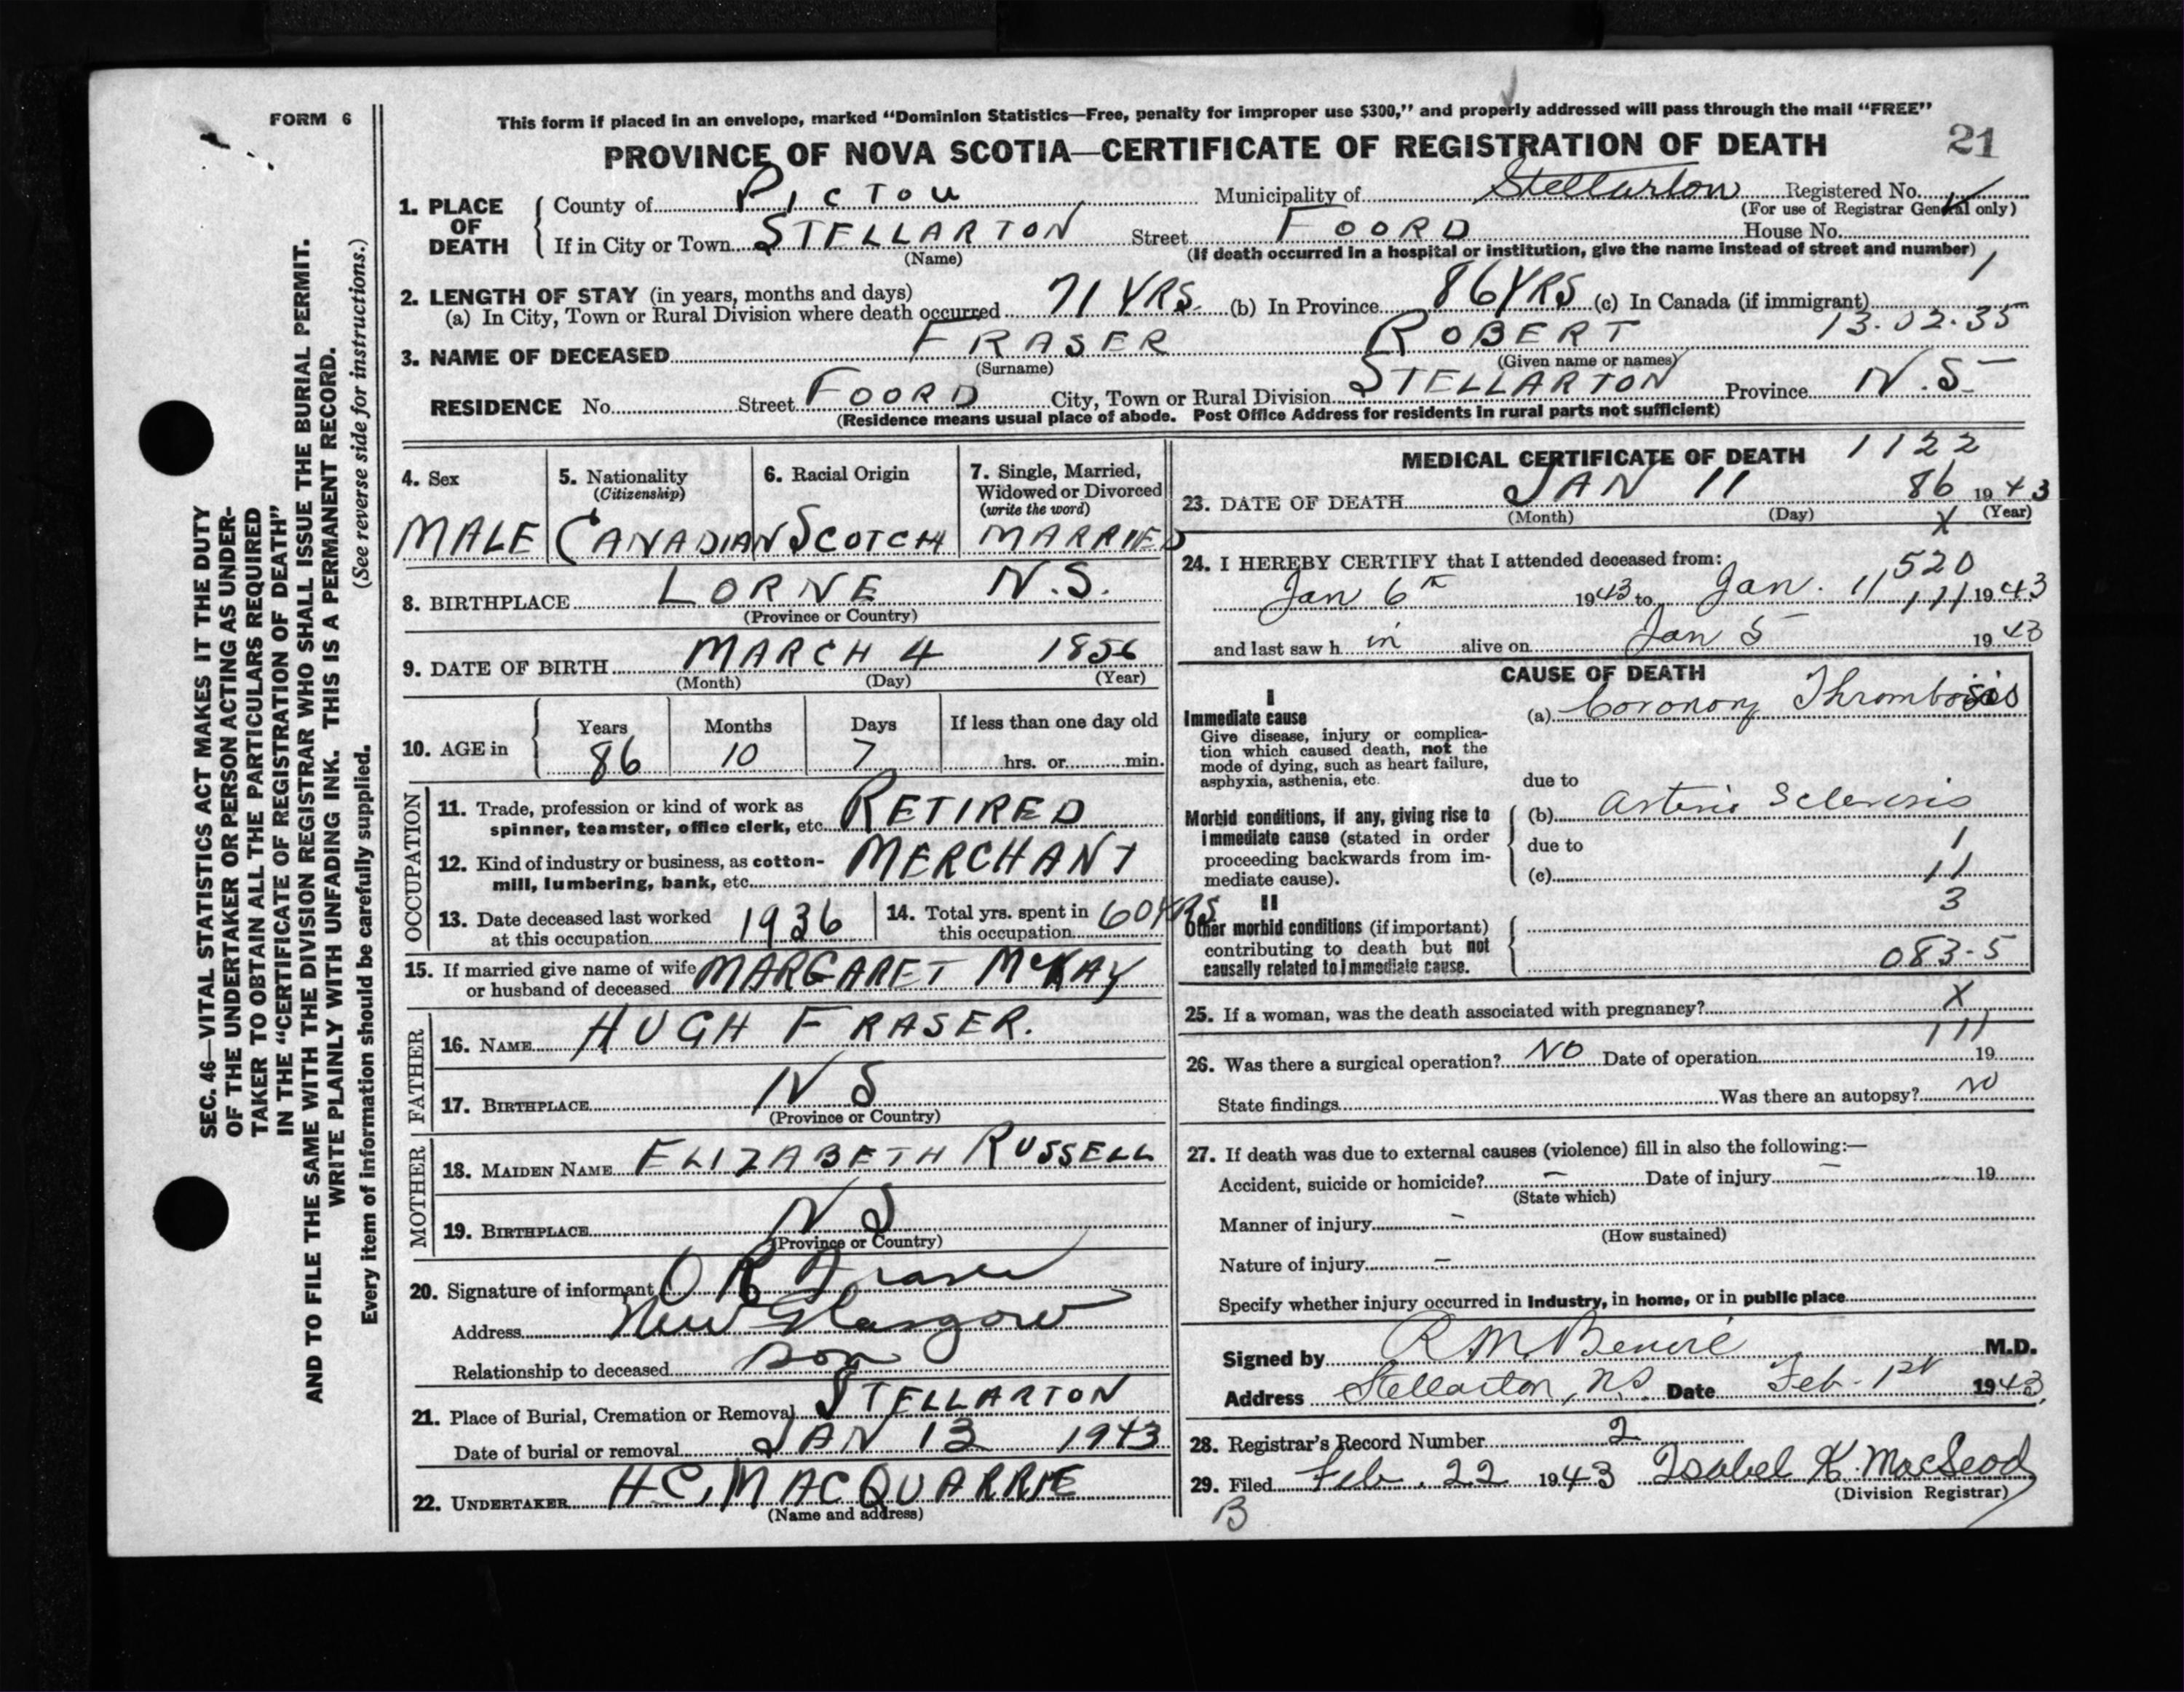 FORM 6
This form if placed in an envelope, marked “Dominion Statistics—Free, penalty for improper use $300,” and properly addressed will pass through the mail “FREE”
PROVINCE OF NOVA SCOTIA—CERTIFICATE OF REGISTRATION OF DEATH
21
SEC. 46—VITAL STATISTICS ACT MAKES IT THE DUTY
OF THE UNDERTAKER OR PERSON ACTING AS UNDER-
TAKER TO OBTAIN ALL THE PARTICULARS REQUIRED
IN THE “CERTIFICATE OF REGISTRATION OF DEATH”
AND TO FILE THE SAME WITH THE DIVISION REGISTRAR WHO SHALL ISSUE THE BURIAL PERMIT.
WRITE PLAINLY WITH UNFADING INK. THIS IS A PERMANENT RECORD.
Every item of information should be carefully supplied. (See reverse side for instructions.)
1. PLACE OF DEATH
County of PICTOU Municipality of Stellarton Registered No.
(For use of Registrar General only)
If in City or Town STELLARTON Street FOORD House No.
(Name) (If death occurred in a hospital or institution, give the name instead of street and number)
1
2. LENGTH OF STAY (in years, months and days)
(a) In City, Town or Rural Division where death occurred 71 YRS. (b) In Province 86 YRS (c) In Canada (if immigrant)
13.02.35
3. NAME OF DECEASED FRASER ROBERT
(Surname) (Given name or names)
RESIDENCE No. Street FOORD City, Town or Rural Division STELLARTON Province N.S.
(Residence means usual place of abode. Post Office Address for residents in rural parts not sufficient)
4. Sex
MALE
5. Nationality
(Citizenship)
CANADIAN
6. Racial Origin
SCOTCH
7. Single, Married,
Widowed or Divorced
(write the word)
MARRIED
8. BIRTHPLACE LORNE N.S.
(Province or Country)
9. DATE OF BIRTH MARCH 4 1856
(Month) (Day) (Year)
10. AGE in
Years Months Days If less than one day old
86 10 7 hrs. or min.
OCCUPATION
11. Trade, profession or kind of work as
spinner, teamster, office clerk, etc. RETIRED
12. Kind of industry or business, as cotton-
mill, lumbering, bank, etc. MERCHANT
13. Date deceased last worked
at this occupation 1936
14. Total yrs. spent in
this occupation 60 YRS
15. If married give name of wife
or husband of deceased MARGARET McKAY
FATHER
16. NAME HUGH FRASER.
17. BIRTHPLACE N S
(Province or Country)
MOTHER
18. MAIDEN NAME ELIZABETH RUSSELL
19. BIRTHPLACE N S
(Province or Country)
20. Signature of informant O R Fraser
Address New Glasgow
Relationship to deceased son
21. Place of Burial, Cremation or Removal STELLARTON
Date of burial or removal JAN 13 1943
22. UNDERTAKER H C, MACQUARRIE
(Name and address)
MEDICAL CERTIFICATE OF DEATH 1122
23. DATE OF DEATH JAN 11 86 1943
(Month) (Day) (Year)
X
24. I HEREBY CERTIFY that I attended deceased from:
520
Jan 6th 1943 to Jan. 11 111 1943
and last saw h in alive on Jan 5 1943
CAUSE OF DEATH
I
Immediate cause
Give disease, injury or complica-
tion which caused death, not the
mode of dying, such as heart failure,
asphyxia, asthenia, etc.
(a) Coronory Thrombosis
due to
Morbid conditions, if any, giving rise to
immediate cause (stated in order
proceeding backwards from im-
mediate cause).
(b) Arterio Sclerosis
due to 1
(c) 11
3
II
Other morbid conditions (if important)
contributing to death but not
causally related to immediate cause.
083-5
25. If a woman, was the death associated with pregnancy? X
111
26. Was there a surgical operation? NO Date of operation 19
State findings Was there an autopsy? no
27. If death was due to external causes (violence) fill in also the following:—
Accident, suicide or homicide? – Date of injury – 19
(State which)
Manner of injury -
(How sustained)
Nature of injury –
Specify whether injury occurred in industry, in home, or in public place
Signed by R M Benvie M.D.
Address Stellarton, N.S. Date Feb. 1st 1943,
28. Registrar's Record Number 2
29. Filed Feb. 22 1943 Isabel K. MacLeod
(Division Registrar)
B